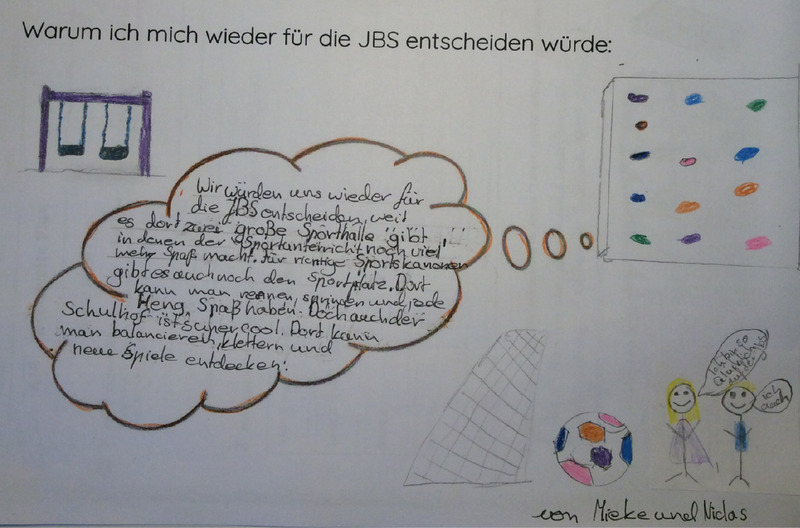 Warum ich mich wieder für die JBS entscheiden würde:
Wir würden uns wieder für
die JBS entscheiden, weil
es dort zwei große Sporthalle gibt,
in denen der Sportunterricht noch viel
mehr Spaß macht. Für richtige Sportskanonen
gibt es auch noch den Sportplatz. Dort
kann man rennen, springen und jede
Meng Spaß haben. Doch auch der
Schulhof ist super cool. Dort kann
man balancieren, klettern und
neue Spiele entdecken.
Ich bin so
glücklich
auf der JBS
Ich
auch
von Mieke und Niclas